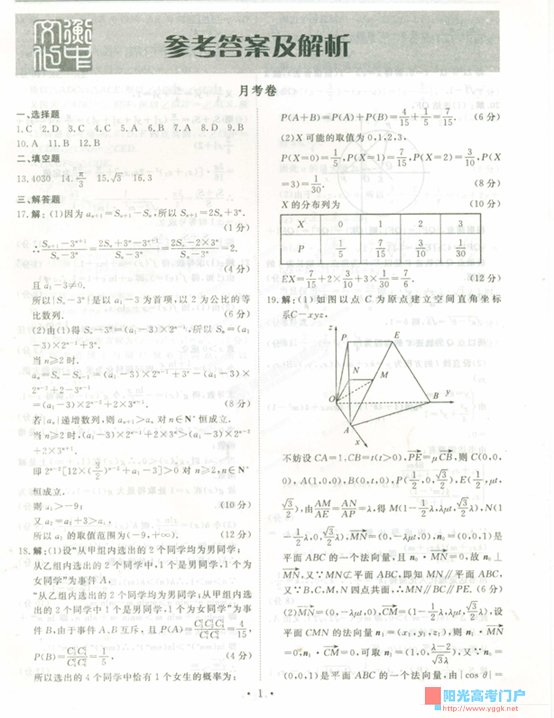 衡中文化
参考答案及解析
月考卷
一、选择题
1.C 2.D 3.C 4.C 5.A 6.B 7.A 8.D 9.B
10.A 11.B 12.B
二、填空题
13.4030 14.π/3 15.√3 16.3
三、解答题
17.解:(1)因为aₙ₊₁=Sₙ₊₁-Sₙ,所以Sₙ₊₁=2Sₙ+3ⁿ.
(1分)
∴(Sₙ₊₁-3ⁿ⁺¹)/(Sₙ-3ⁿ)=(2Sₙ+3ⁿ-3ⁿ⁺¹)/(Sₙ-3ⁿ)=(2Sₙ-2×3ⁿ)/(Sₙ-3ⁿ)=2.
(4分)
且a₁-3≠0,
所以{Sₙ-3ⁿ}是以a₁-3为首项,以2为公比的等
比数列. (6分)
(2)由(1)得Sₙ-3ⁿ=(a₁-3)×2ⁿ⁻¹,所以Sₙ=(a₁
-3)×2ⁿ⁻¹+3ⁿ.
当n≥2时.
aₙ=Sₙ-Sₙ₋₁=(a₁-3)×2ⁿ⁻¹+3ⁿ-(a₁-3)×
2ⁿ⁻²+2-3ⁿ⁻¹
=(a₁-3)×2ⁿ⁻²+2×3ⁿ⁻¹. (8分)
若{aₙ}递增数列,则aₙ₊₁>aₙ对n∈N*恒成立.
当n≥2时,(a₁-3)×2ⁿ⁻¹+2×3ⁿ>(a₁-3)×2ⁿ⁻²
+2×3ⁿ⁻¹.
即2ⁿ⁻²[12×(3/2)ⁿ⁻²+a₁-3]>0对n≥2,n∈N
恒成立.
则a₁>-9; (10分)
又a₂=a₁+3>a₁,
所以a₁的取值范围为(-9,+∞). (12分)
18.解:(1)设“从甲组内选出的2个同学均为男同学;
从乙组内选出的2个同学中,1个是男同学,1个为
女同学”为事件A,
“从乙组内选出的2个同学均为男同学;从甲组内选
出的2个同学中1个是男同学,1个为女同学”为事
件B,由于事件A、B互斥,且P(A)=
=4/15,
P(B)=
=1/5. (4分)
所以选出的4个同学中恰有1个女生的概率为:
P(A+B)=P(A)+P(B)=4/15+1/5=7/15. (6分)
(2)X可能的取值为0,1,2,3.
P(X=0)=1/5,P(X=1)=7/15,P(X=2)=3/10,P(X
=3)=1/30. (8分)
X的分布列为 (10分)
X 0 1 2 3
P 1/5 7/15 3/10 1/30
EX=7/15+2×3/10+3×1/30=7/6. (12分)
19.解:(1)如图以点C为原点建立空间直角坐标
系C-xyz.
z
P E
N M
O B y
A
x
不妨设CA=1,CB=t(t>0),PE=μCB,则C(0,0,
0),A(1,0,0),B(0,t,0),P(1/2,0,√3/2),E(1/2,μt,
√3/2),由AM/AE=AN/AP=λ,得M(1-1/2λ,λμt,√3/2λ),N(1
-1/2λ,0,√3/2λ),MN=(0,-λμt,0),n₀=(0,0,1)是
平面ABC的一个法向量,且n₀·MN=0,故n₀⊥
MN,又∵MN⊄平面ABC,即知MN∥平面ABC,
又∵B、C、M、N四点共面,∴MN∥BC∥PE. (6分)
(2)MN=(0,-λμt,0),CM=(1-1/2λ,λμt,√3/2λ),设
平面CMN的法向量n₁=(x₁,y₁,z₁),则n₁·MN
=0,n₁·CM=0,可取n₁=(1,0,(λ-2)/(√3λ)),又∵n₀=
(0,0,1)是平面ABC的一个法向量,由|cos θ|=
· 1 ·
阳光高考门户
www.yggk.net